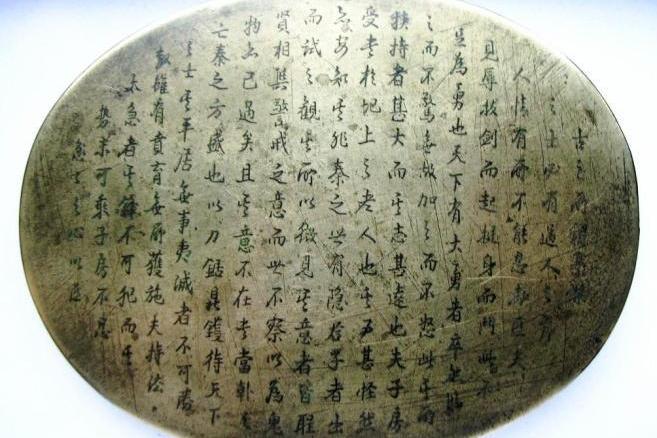 古之所謂豪傑
之士必有過人之節
人情有所不能忍者匹夫
見辱拔劍而起挺身而鬥此不
足為勇也天下有大勇者卒然臨
之而不驚無故加之而不怒此其所
挾持者甚大而其志甚遠也夫子房
受書於圯上之老人也其事甚怪然
亦安知其非秦之世有隱君子者出
而試之觀其所以微見其意者皆聖
賢相與警戒之意而世不察以為鬼
物亦已過矣且其意不在書當韓之
亡秦之方盛也以刀鋸鼎鑊待天下
之士其平居無事夷滅者不可勝
數雖有賁育無所獲施夫持法
太急者其鋒不可犯而其
勢未可乘子房不忍
忿忿之心以匹